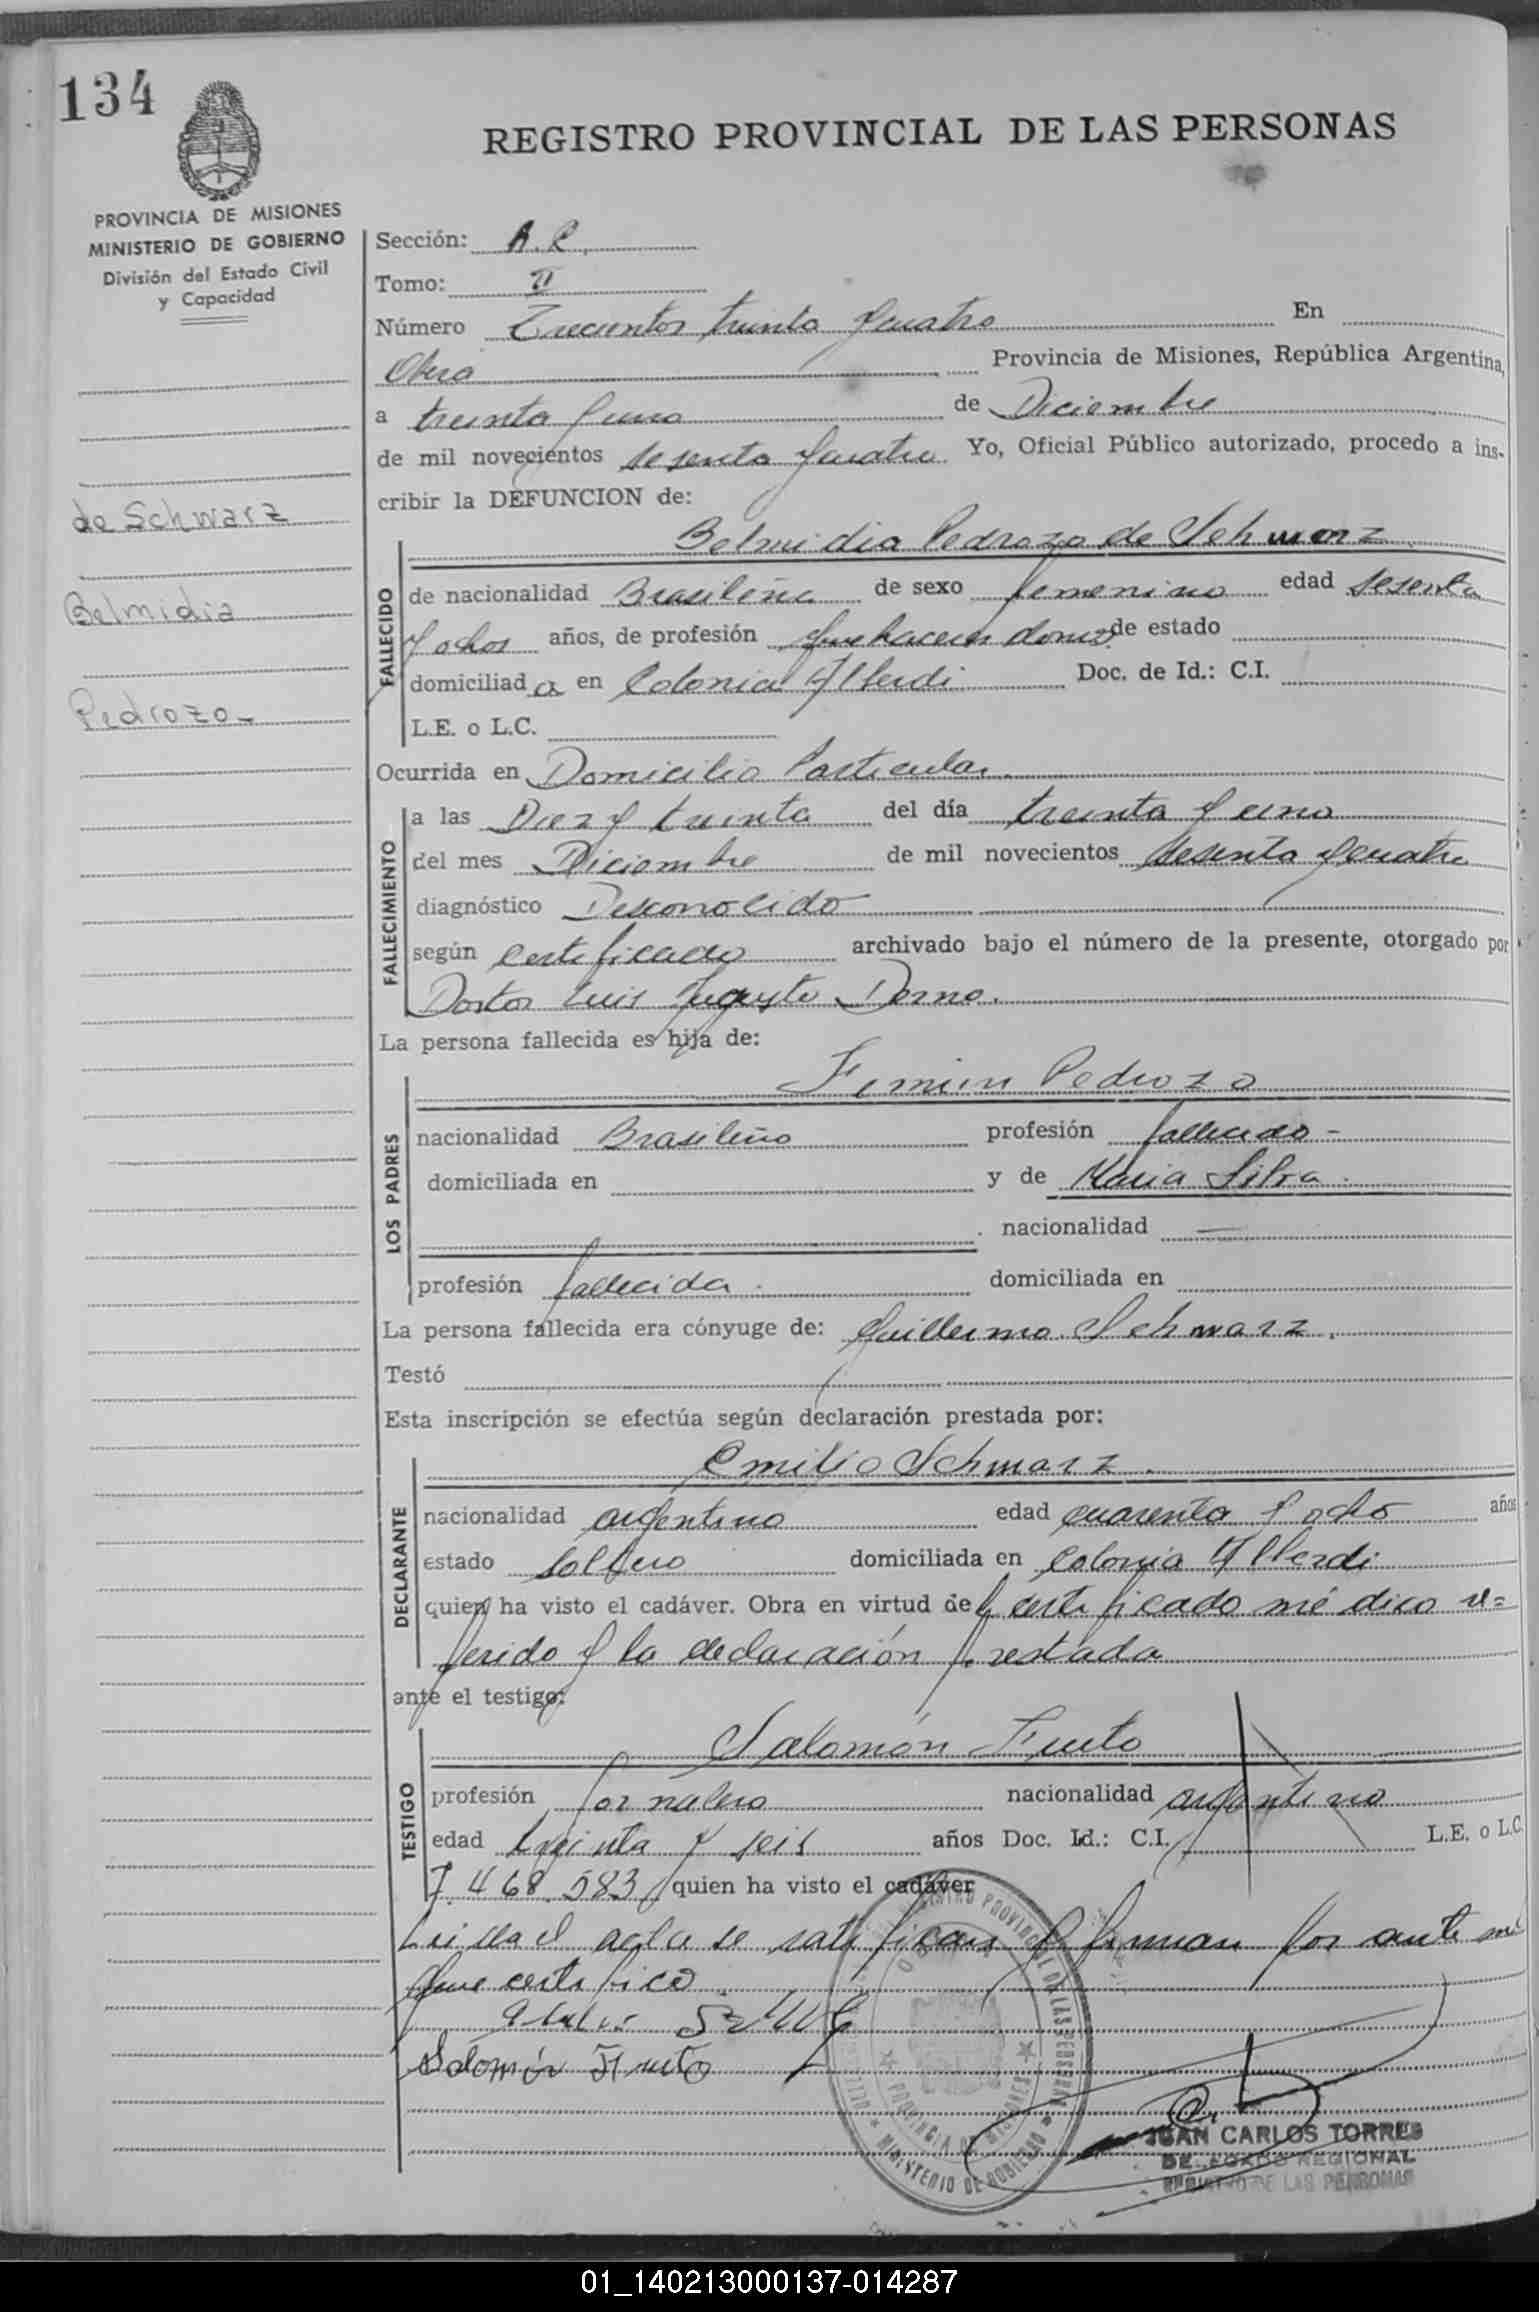 134
REGISTRO PROVINCIAL DE LAS PERSONAS
PROVINCIA DE MISIONES
MINISTERIO DE GOBIERNO
División del Estado Civil
y Capacidad
de Schwarz
Belmidia
Pedrozo-
Sección: A.R.
Tomo: II
Número Trecientos treinta y cuatro En
Obera Provincia de Misiones, República Argentina,
a treinta y uno de Diciembre
de mil novecientos sesenta y cuatro Yo, Oficial Público autorizado, procedo a ins-
cribir la DEFUNCION de:
FALLECIDO
Belmidia Pedrozo de Schwarz
de nacionalidad Brasileña de sexo femenino edad sesenta
y ochos años, de profesión quehaceres domes. de estado
domiciliada en Colonia Doc. de Id.: C.I.
L.E. o L.C.
Ocurrida en Domicilio Particular.
FALLECIMIENTO
a las Diez y treinta del día treinta y uno
del mes Diciembre de mil novecientos sesenta y cuatro
diagnóstico Desconocido
según certificado archivado bajo el número de la presente, otorgado por
Doctor Luis Augusto Derna.
La persona fallecida es hija de:
LOS PADRES
Fermin Pedrozo
nacionalidad Brasileño profesión fallecido-
domiciliada en y de Maria Silva.
nacionalidad —
profesión fallecida. domiciliada en
La persona fallecida era cónyuge de: Guillermo Schwarz.
Testó
Esta inscripción se efectúa según declaración prestada por:
DECLARANTE
Emilio Schwarz.
nacionalidad argentino edad cuarenta y ocho años
estado soltero domiciliada en Colonia
quien ha visto el cadáver. Obra en virtud del certificado médico re=
ferido y la declaración prestada
ante el testigo:
TESTIGO
Salomón Fruto
profesión jornalero nacionalidad argentino
edad treinta y seis años Doc. Id.: C.I. L.E. o L.C.
7.468.583 quien ha visto el cadáver
Leida el acta se ratifican y firman por ante mi
que certifico
Salomón Fruto
REGISTRO PROVINCIAL DE LAS PERSONAS
PROVINCIA DE MISIONES
MINISTERIO DE GOBIERNO
JUAN CARLOS TORRES
REGIONAL
REGISTRO DE LAS PERSONAS
01_140213000137-014287